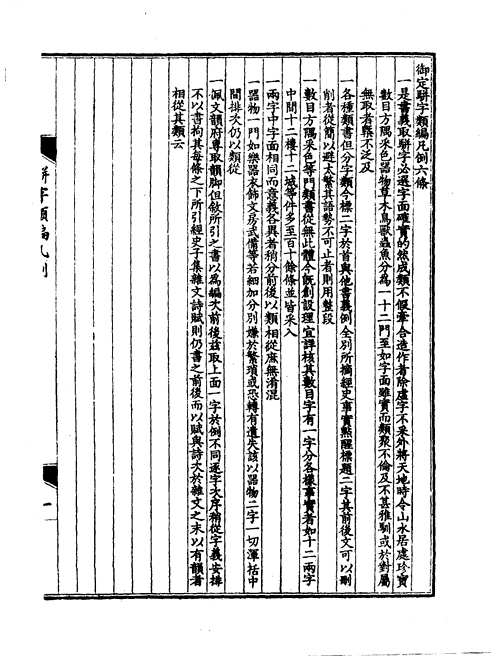 御定駢字類編凡例六條
一是書義取駢字必選字面確實的然成類不假牽合造作者除虛字不采外將天地時令山水居處珍寶
數目方隅采色器物草木鳥獸蟲魚分為一十二門至如字面雖實而類聚不倫及不甚雅馴或於對屬
無取者槩不泛及
一各種類書但分字類今標二字於首與他書義例全別所摘經史事實㸃醒標題二字其前後文可以刪
削者從簡以避太繁其語勢不可止者則用整段
一數目方隅采色等門類書從無此體今既創設理宜詳核其數目字有一字分各様事實者如十二兩字
中間十二樓十二城等件多至百十餘條並皆采入
一兩字中字面相同而意義各異者稍分前後以類相從庶無淆混
一器物一門如樂器衣飾文房武備等若細加分別嫌於繁瑣或恐轉有遺失該以器物二字一切渾括中
間排次仍以類從
一佩文韻府專取韻脚但敘所引之書以為編次前後兹取上面一字於例不同逐字次序稍從字義安排
不以書拘其每條之下所引經史子集雜文詩賦則仍書之前後而以賦與詩次於雜文之末以有韻者
相從其類云
駢字類編凡例
一